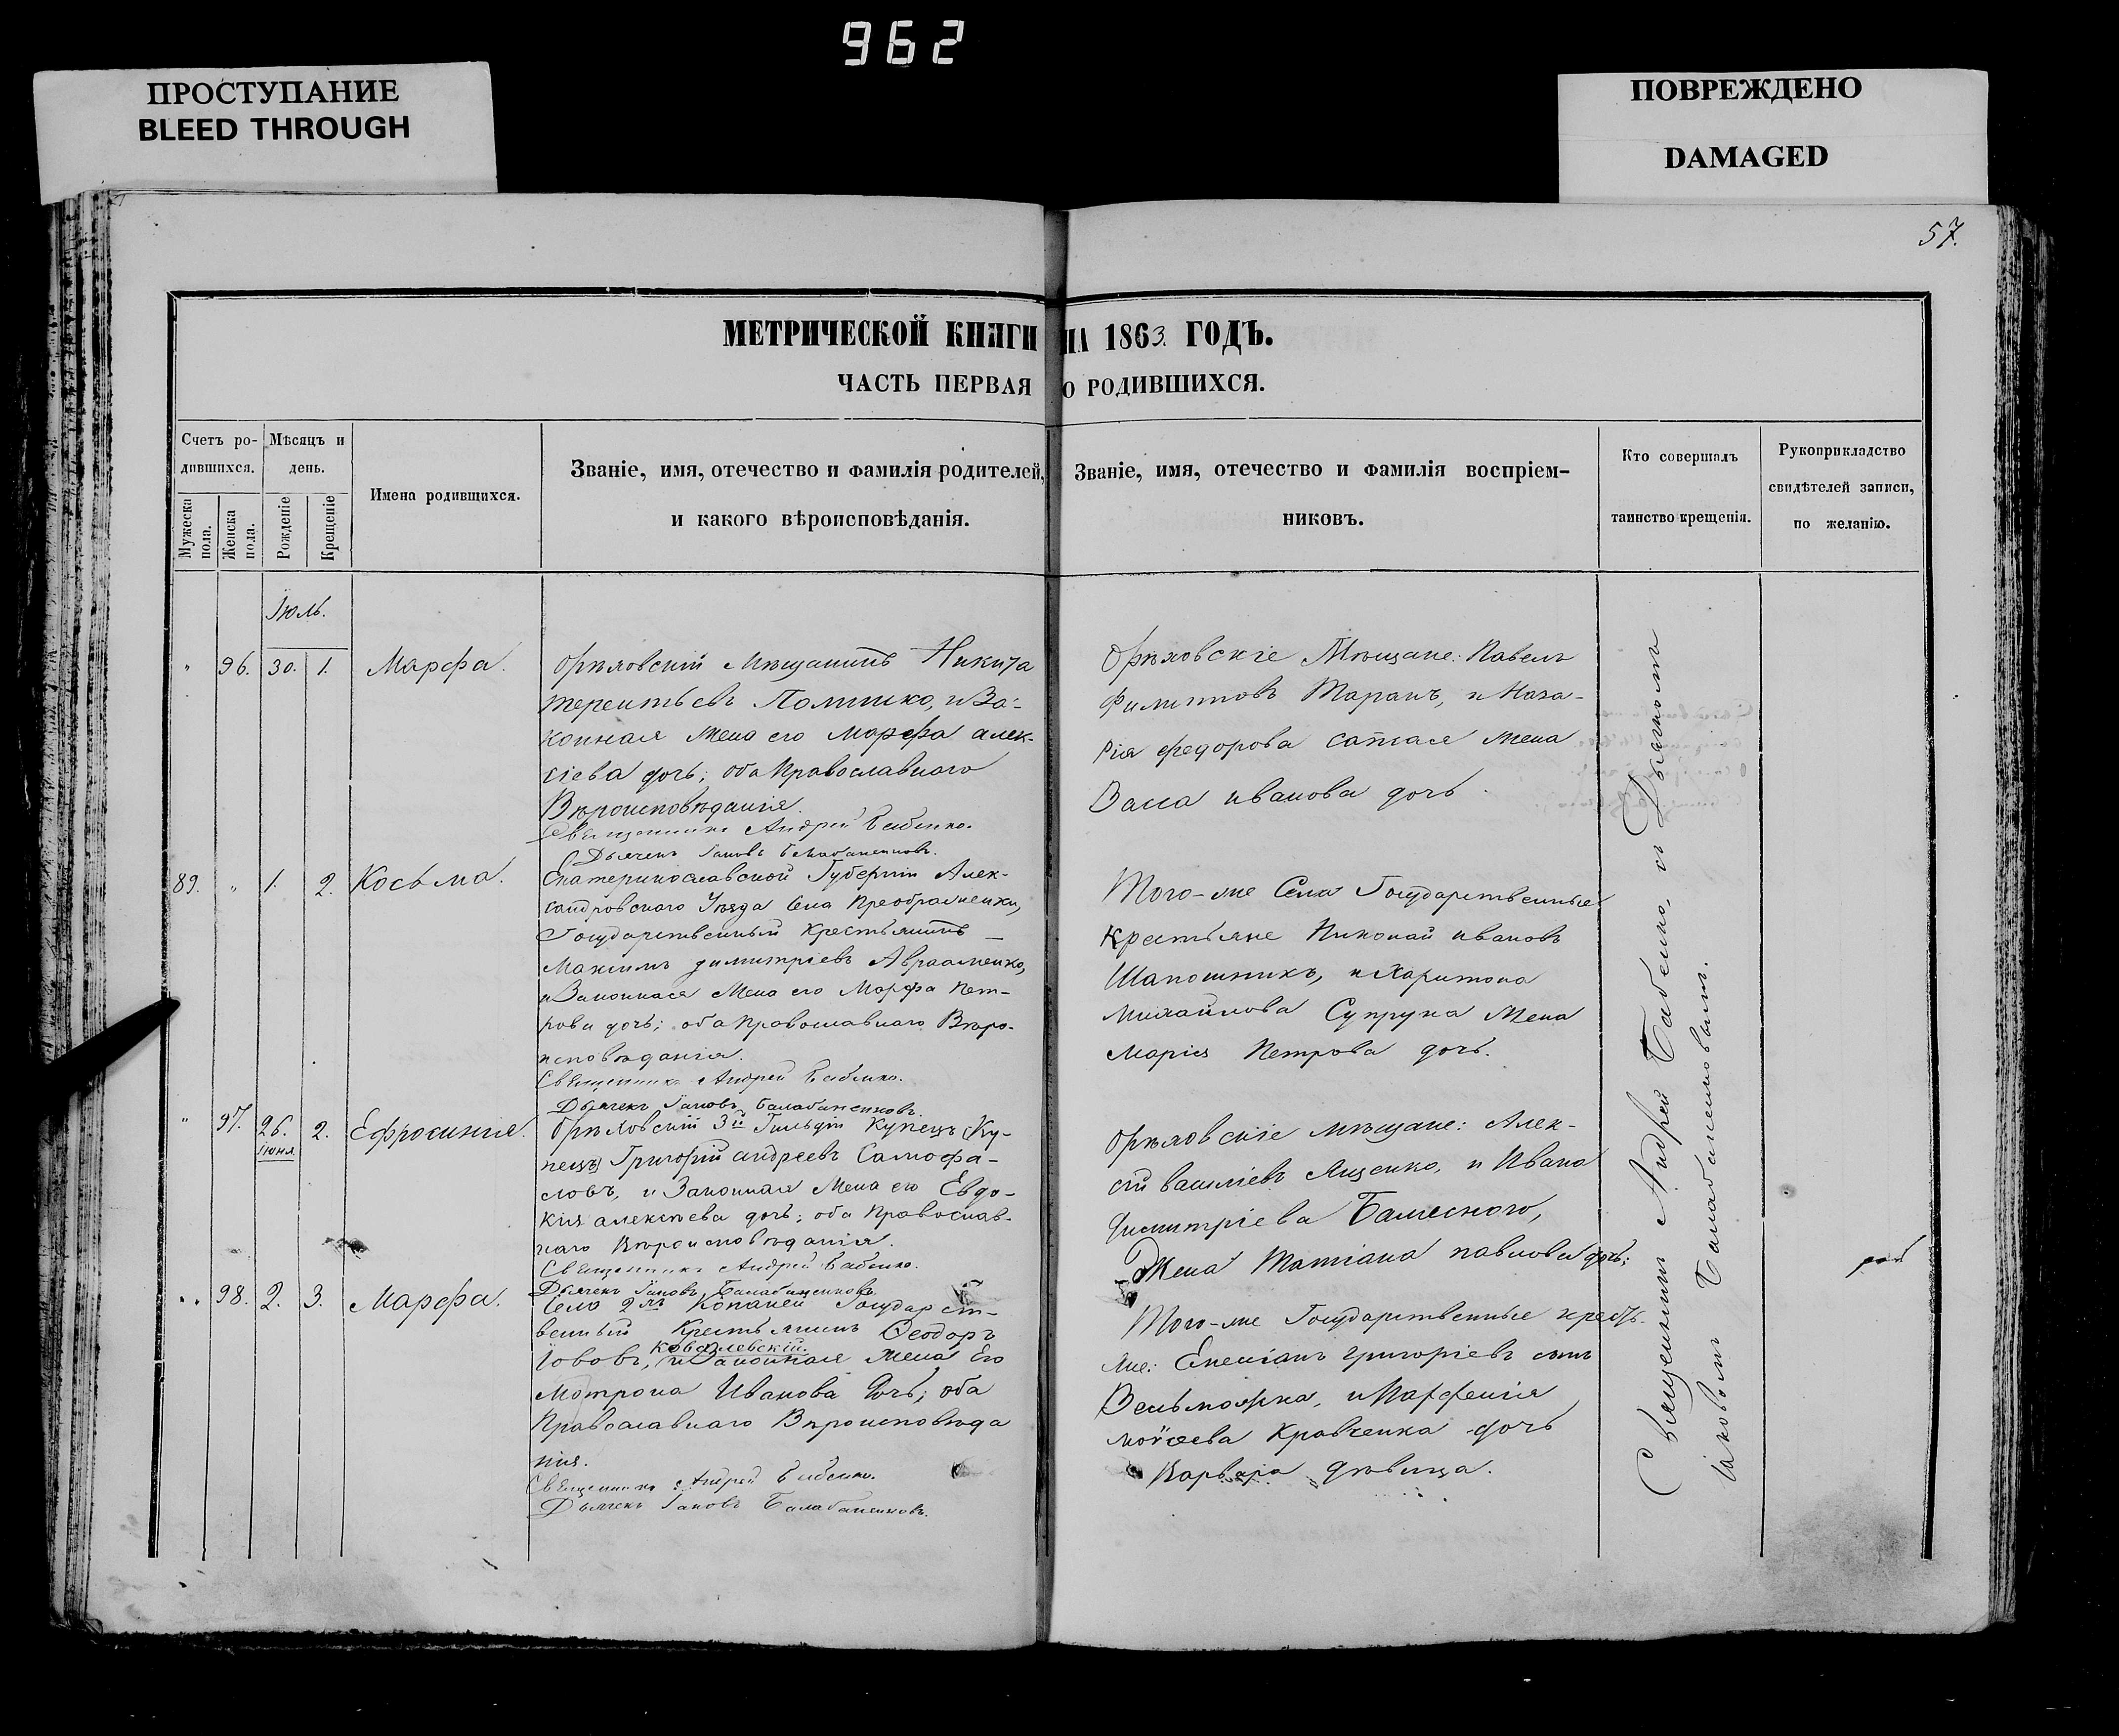 962
ПРОСТУПАНИЕ
BLEED THROUGH
ПОВРЕЖДЕНО
DAMAGED
57.
МЕТРИЧЕСКОЙ КНИГИ НА 1863. ГОДЪ.
ЧАСТЬ ПЕРВАЯ О РОДИВШИХСЯ.
Счетъ ро-
дившихся.
Мужеска пола.
Женска пола.
Мѣсяцъ и
день.
Рожденіе
Крещеніе
Имена родившихся.
Званіе, имя, отечество и фамилія родителей,
и какого вѣроисповѣданія.
Званіе, имя, отечество и фамилія воспріем-
никовъ.
Кто совершалъ
таинство крещенія.
Рукоприкладство
свидѣтелей записи,
по желанію.
Іюль.
" 96. 30. 1. Марфа.
Орѣховскій Мѣщанинъ Никита
терентьевъ, и За-
конная жена его Марфа алек-
сіева дочь; оба Православнаго
Вѣроисповѣданія.
Священникъ Андрей Бабенко.
Дьячекъ Іаковъ Балабаненковъ.
Орѣховскіе Мѣщане: Павелъ
Филиповъ Таранъ, и Наза-
рія федорова жена
Васса иванова дочь.
89. " 1. 2. Косьма.
Екатеринославской Губерніи Алек-
сандровскаго Уѣзда Села Преображенки,
Государственный Крестьянинъ
Максимъ димитріевъ Авраменко,
и Законная жена его Марфа Пет-
рова дочь; оба Православнаго Вѣро-
исповѣданія.
Священникъ Андрей Бабенко.
Дьячекъ Іаковъ Балабаненковъ.
Того-же Села Государственные
крестьяне Николай ивановъ
Шапошникъ, и Харитона
михайлова Супруна жена
Марія Петрова дочь.
" 97. 26. Іюня 2. Ефросинія.
Орѣховскій 3й Гильдіи Купецъ (Ку-
пецъ) Григорій андреевъ Самофа-
ловъ, и Законная жена его Евдо-
кія алексѣева дочь; оба Православ-
наго Вѣроисповѣданія.
Священникъ Андрей Бабенко.
Дьячекъ Іаковъ Балабаненковъ.
Орѣховскіе мѣщане: Алек-
сій василіевъ Яценко, и Ивана
димитріева
Жена Татіана павлова дочь;
" 98. 2. 3. Марфа.
Села 2хъ Копаней Государст-
венный Крестьянинъ Ѳеодоръ
Ковалевскій.
Іововъ, и Законная жена Его
Мотрона Иванова дочь; оба
Православнаго Вѣроисповѣда
нія.
Священникъ Андрей Бабенко.
Дьячекъ Іаковъ Балабаненковъ.
Того-же Государственные крестья-
не: григоріевъ сынъ
Вельможка, и Парфенія
моѵсеева Кравченка дочь
Варвара дѣвица.
Священникъ Андрей Бабенко, съ Дьячкомъ
Іаковомъ Балабаненковымъ.